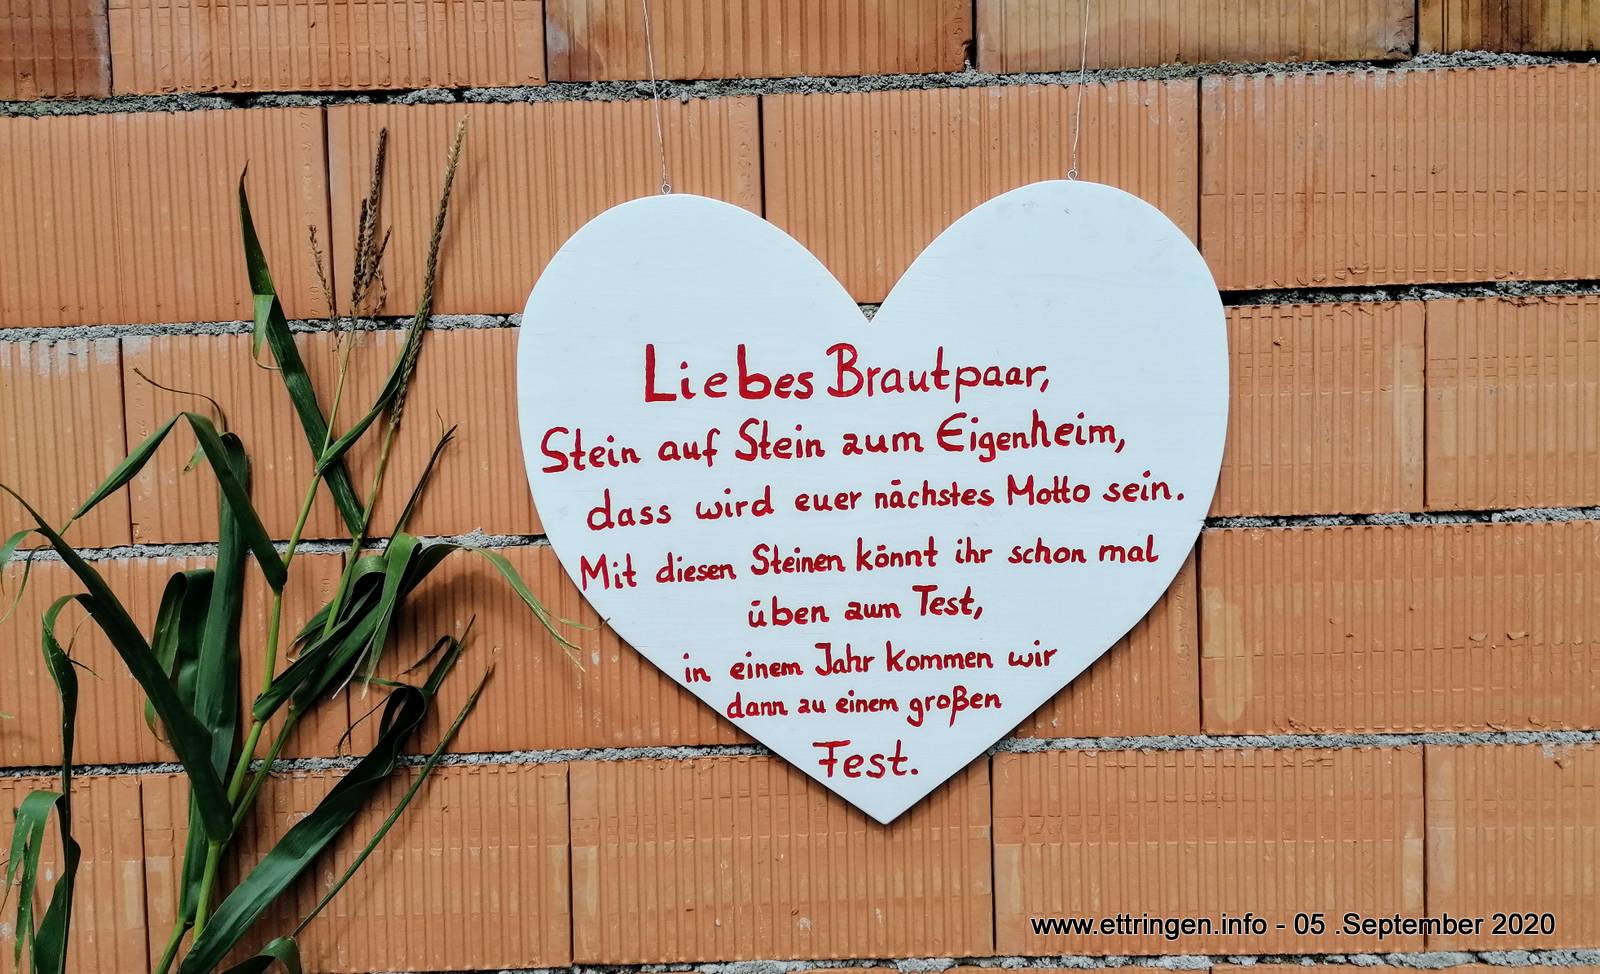 Liebes Brautpaar,
Stein auf Stein zum Eigenheim,
dass wird euer nächstes Motto sein.
Mit diesen Steinen könnt ihr schon mal
üben zum Test,
in einem Jahr kommen wir
dann zu einem großen
Fest.
www.ettringen.info - 05 .September 2020